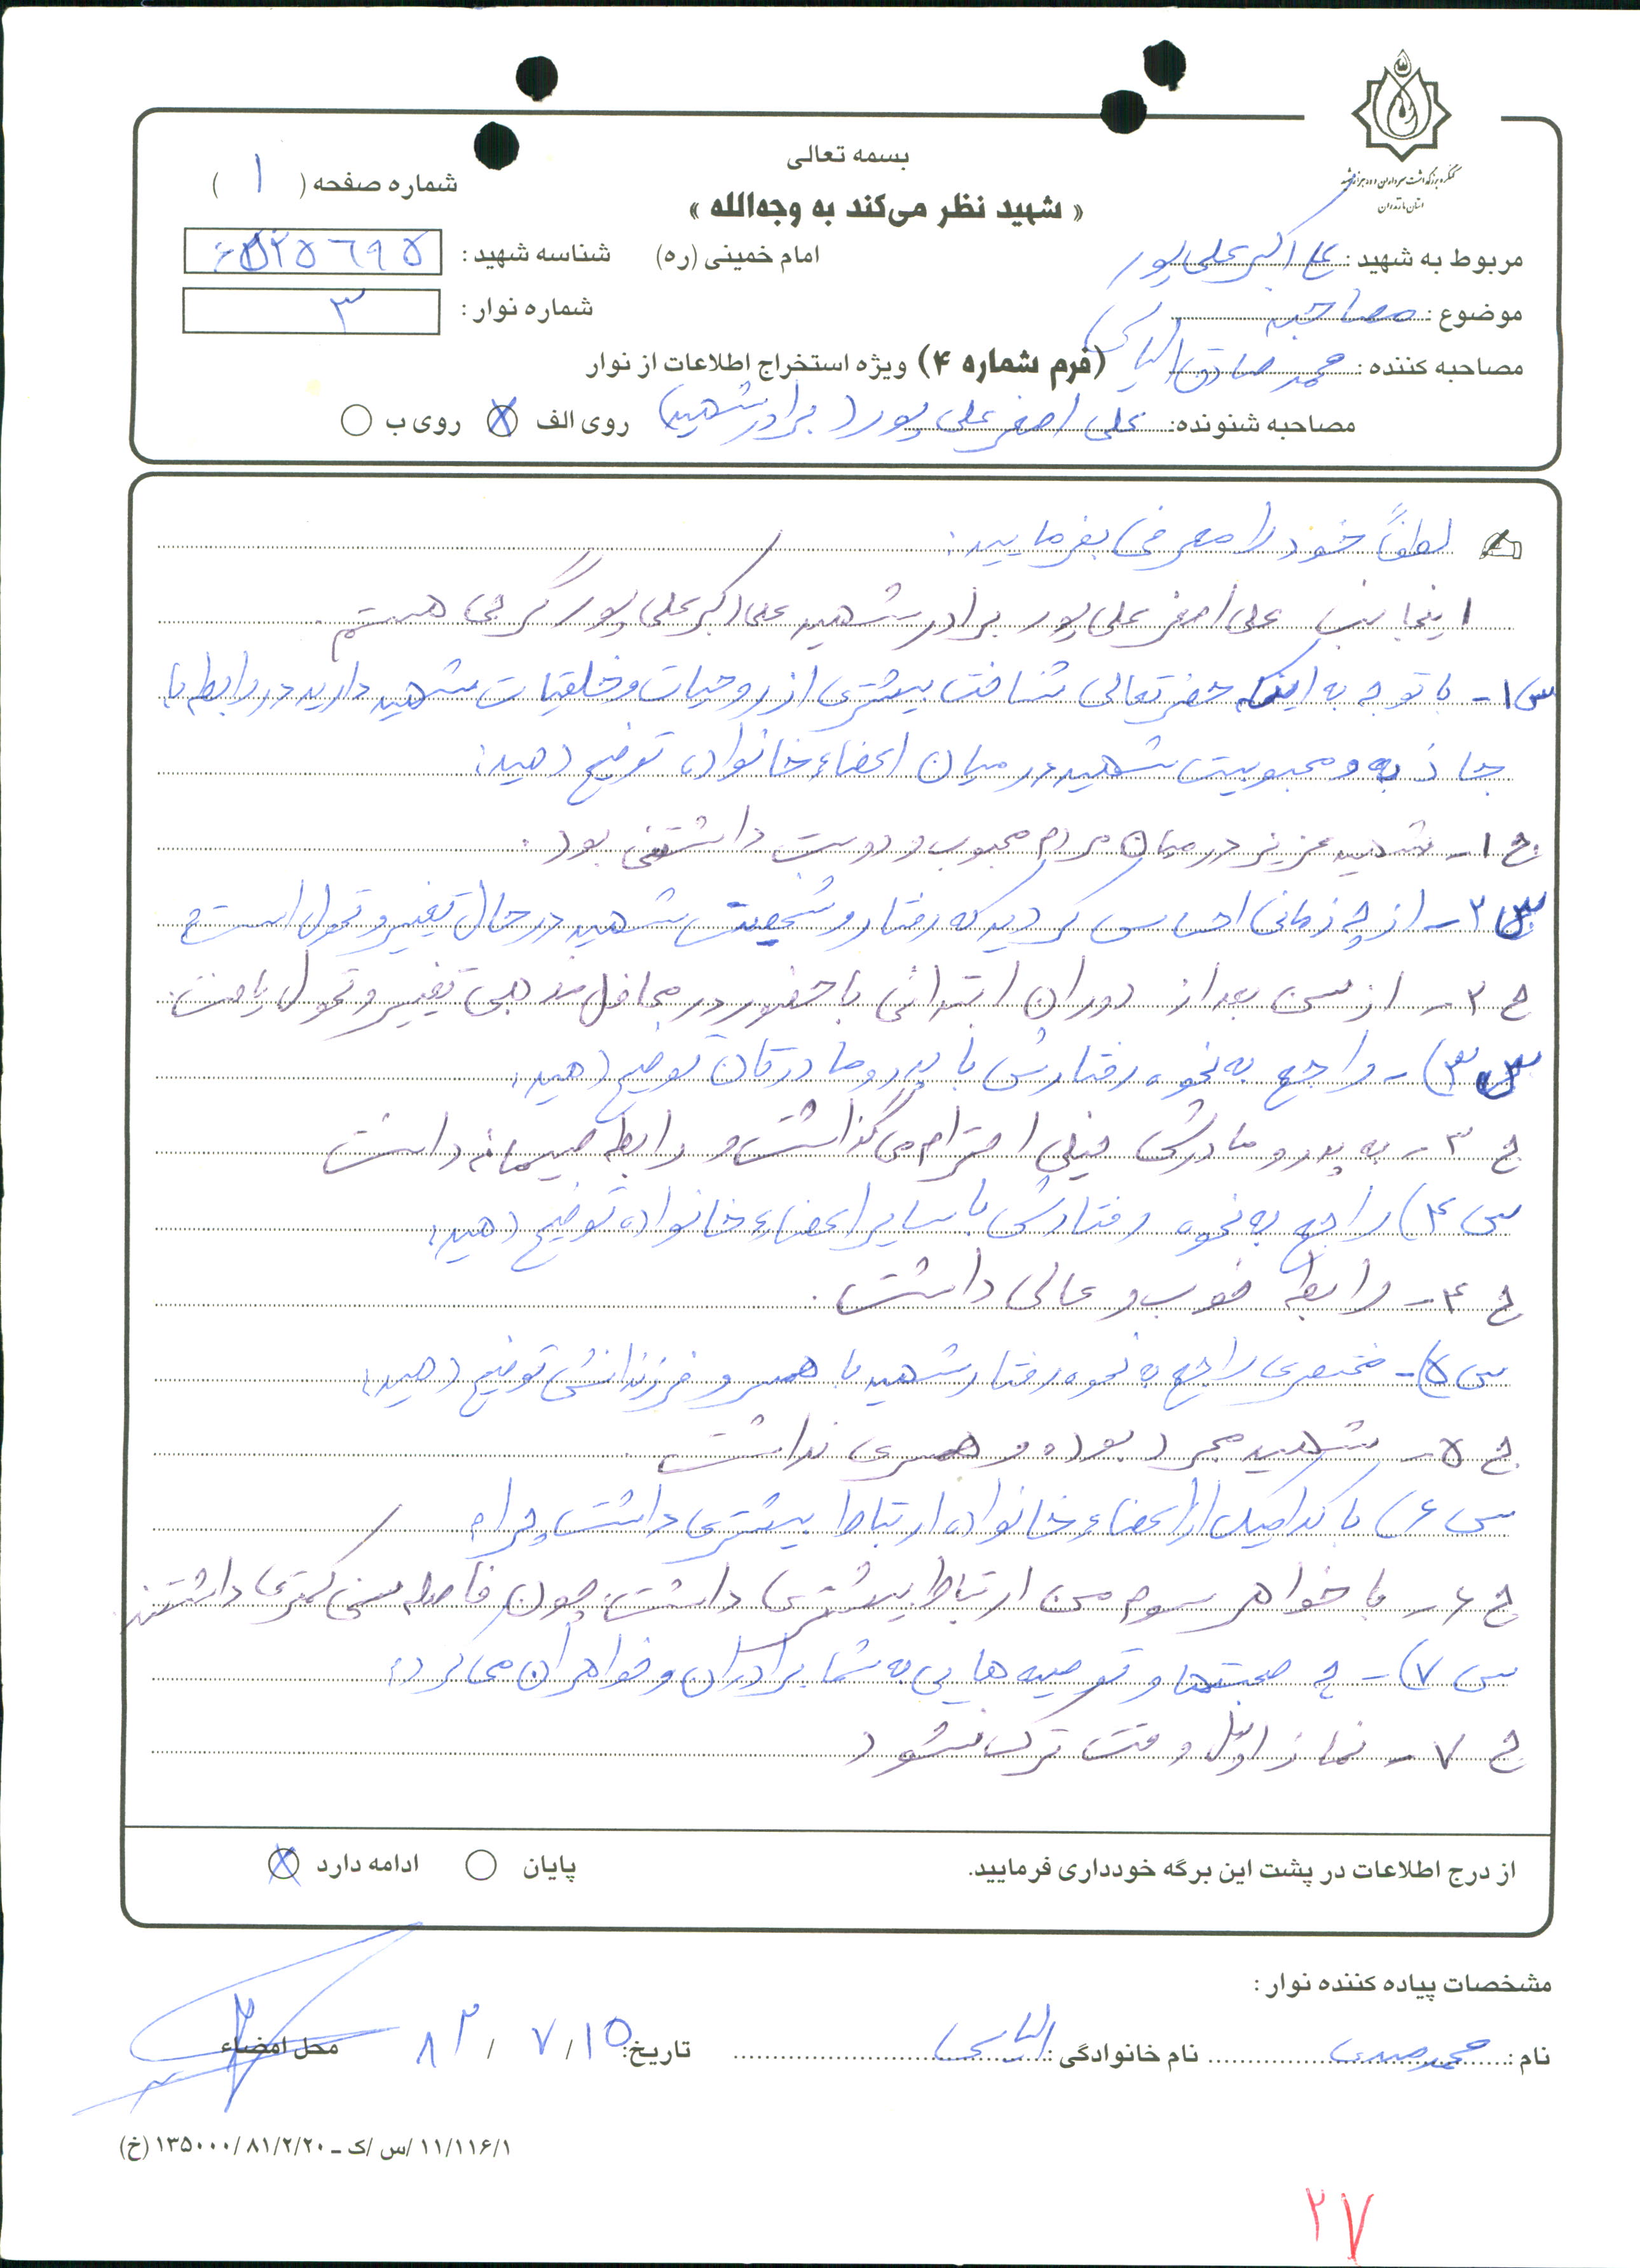 کنگره بزرگداشت سرداران و ده هزار شهید
استان مازندران
بسمه تعالی
« شهید نظر می‌کند به وجه‌الله »
امام خمینی (ره)
شماره صفحه ( ۱ )
شناسه شهید :
شماره نوار : ۳
مربوط به شهید : علی اکبر علی پور
موضوع : مصاحبه
مصاحبه کننده : محمد صادق الیاسی
(فرم شماره ۴) ویژه استخراج اطلاعات از نوار
مصاحبه شنونده: علی اصغر علی پور (برادر شهید) روی الف روی ب
لطفاً خود را معرفی بفرمایید:
اینجانب علی اصغر علی پور برادر شهید علی اکبر علی پور گرجی هستم.
س۱- با توجه به اینکه حضرتعالی شناخت بیشتری از روحیات و خلقیات شهید دارید در رابطه با
جاذبه و محبوبیت شهید در میان اعضاء خانواده توضیح دهید:
ج۱- شهید عزیز در میان مردم محبوب و دوست داشتنی بود.
س۲- از چه زمانی احساس کردید که رفتار و شخصیت شهید در حال تغییر و تحول است؟
ج۲- از سن بعد از دوران ابتدائی با حضور در محافل مذهبی تغییر و تحول یافت.
س۳)- راجع به نحوه رفتارش با پدر و مادرتان توضیح دهید:
ج۳- به پدر و مادرش خیلی احترام می گذاشت و رابطه صمیمانه داشت
س۴) راجع به نحوه رفتارش با سایر اعضاء خانواده توضیح دهید:
ج۴- رابطه خوب و عالی داشت.
س۵)- مختصری راجع به نحوه رفتار شهید با همسر و فرزندانش توضیح دهید:
ج۵- شهید مجرد بوده و همسری نداشت.
س۶) با کدامیک از اعضاء خانواده ارتباط بیشتری داشت چرا؟
ج۶- با خواهر سوم من ارتباط بیشتری داشت چون فاصله سنی کمتری داشتند.
س۷)- چه صحبتها و توصیه هایی به شما برادران و خواهران می کرد؟
ج۷- نماز اول وقت ترک نشود
از درج اطلاعات در پشت این برگه خودداری فرمایید.
پایان ادامه دارد
مشخصات پیاده کننده نوار :
نام : محمد مهدی نام خانوادگی : الیاسی تاریخ: ۸۲/۷/۱۵ محل امضاء
۱۱/۱۱۶/۱ /س /ک ـ ۱۳۵۰۰۰/۸۱/۲/۲۰ (خ)
۲۷